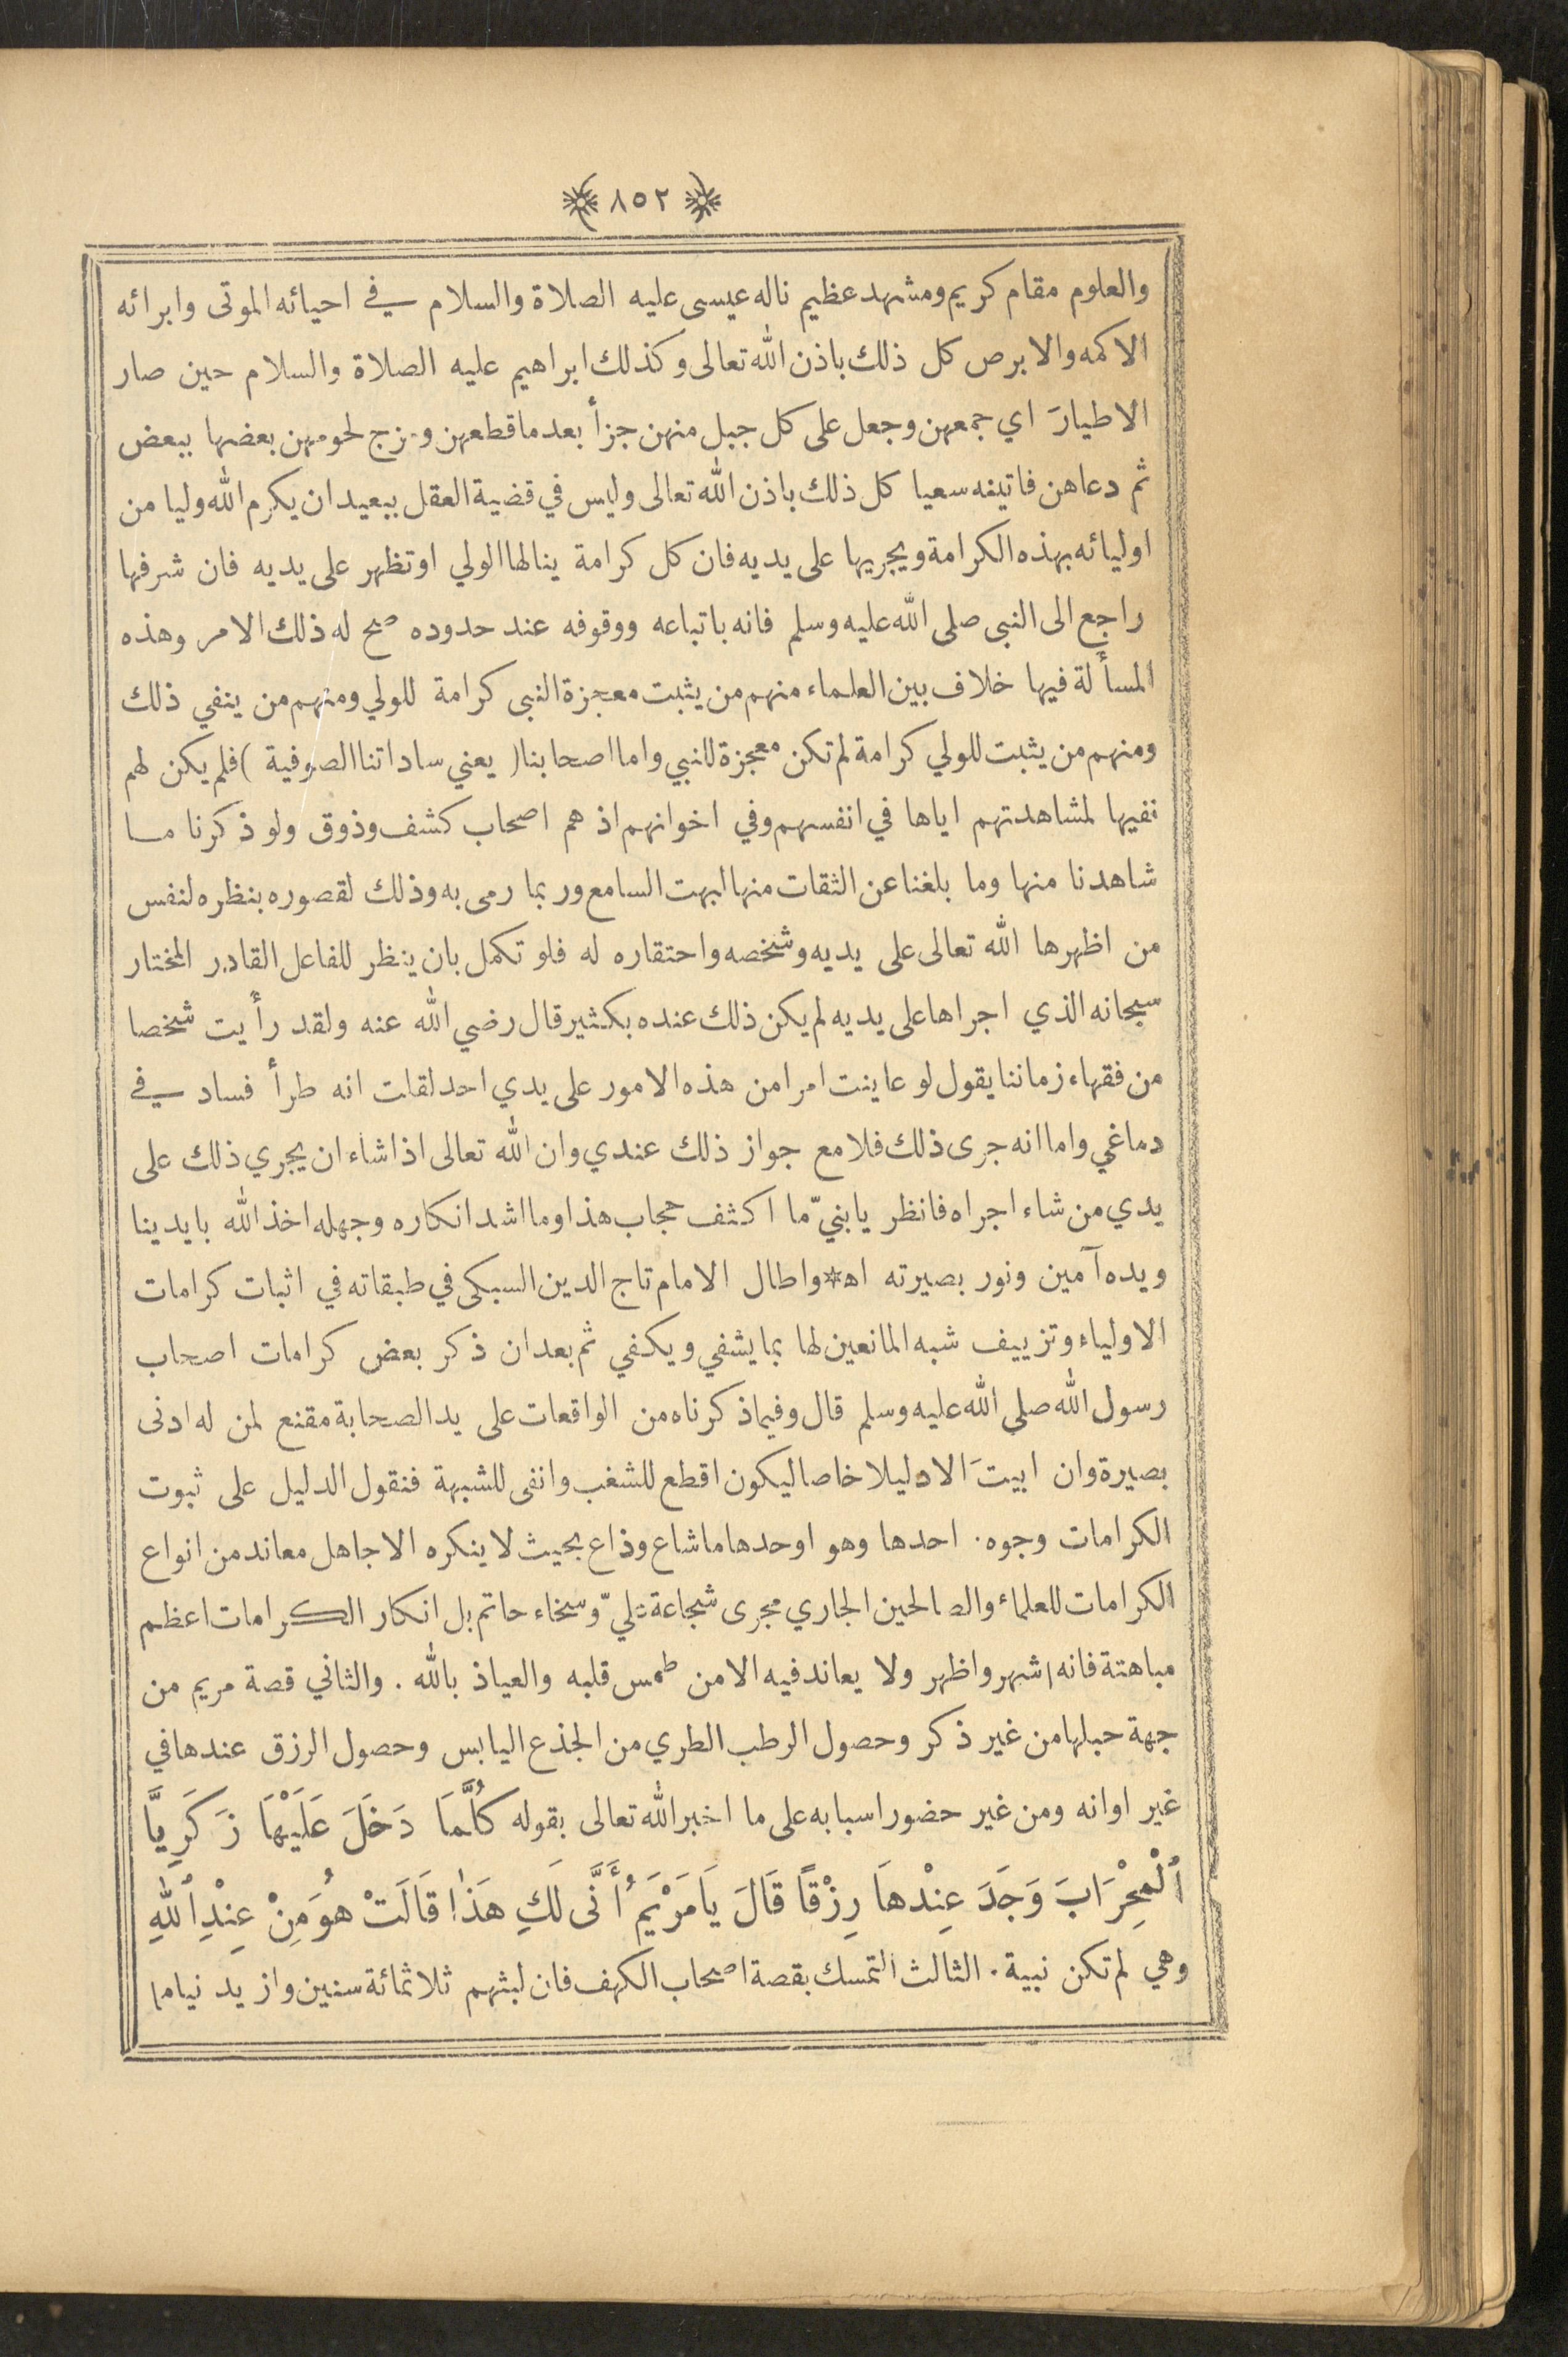 ﴿ ٨٥٢ ﴾
والعلوم مقام كريم ومشهد عظيم ناله عيسى عليه الصلاة والسلام في احيائه الموتى وابرائه
الاكمه والابرص كل ذلك باذن الله تعالى وكذلك ابراهيم عليه الصلاة والسلام حين صار
الاطيارَ اي جمعهن وجعل على كل جبل منهن جزأ بعد ما قطعهن ومزج لحومهن بعضها ببعض
ثم دعاهن فاتينه سعيا كل ذلك باذن الله تعالى وليس في قضية العقل ببعيد ان يكرم الله وليا من
اوليائه بهذه الكرامة ويجريها على يديه فان كل كرامة ينالها الولي او تظهر على يديه فان شرفها
راجع الى النبى صلى الله عليه وسلم فانه باتباعه ووقوفه عند حدوده صح له ذلك الامر وهذه
المسألة فيها خلاف بين العلماء منهم من يثبت معجزة النبى كرامة للولي ومنهم من ينفي ذلك
ومنهم من يثبت للولي كرامة لم تكن معجزة للنبي واما اصحابنا ( يعني ساداتنا الصوفية ) فلم يكن لهم
نفيها لمشاهدتهم اياها في انفسهم وفي اخوانهم اذ هم اصحاب كشف وذوق ولو ذكرنا ما
شاهدنا منها وما بلغنا عن الثقات منها لبهت السامع وربما رمى به وذلك لقصوره بنظره لنفس
من اظهرها الله تعالى على يديه وشخصه واحتقاره له فلو تكمل بان ينظر للفاعل القادر المختار
سبحانه الذي اجراها على يديه لم يكن ذلك عنده بكثير قال رضي الله عنه ولقد رأيت شخصا
من فقهاء زماننا يقول لو عاينت امرا من هذه الامور على يدي احد لقلت انه طرأ فساد في
دماغي واما انه جرى ذلك فلا مع جواز ذلك عندي وان الله تعالى اذا شاء ان يجري ذلك على
يدي من شاء اجراه فانظر يا بنيّ ما اكثف حجاب هذا وما اشد انكاره وجهله اخذ الله بايدينا
ويده آمين ونور بصيرته اه* واطال الامام تاج الدين السبكى في طبقاته في اثبات كرامات
الاولياء وتزييف شبه المانعين لها بما يشفي ويكفي ثم بعد ان ذكر بعض كرامات اصحاب
رسول الله صلى الله عليه وسلم قال وفيما ذكرناه من الواقعات على يد الصحابة مقنع لمن له ادنى
بصيرة وان ابيتَ الا دليلا خاصا ليكون اقطع للشغب وانفى للشبهة فنقول الدليل على ثبوت
الكرامات وجوه . احدها وهو اوحدها ما شاع وذاع بحيث لا ينكره الا جاهل معاند من انواع
الكرامات للعلماء والصالحين الجاري مجرى شجاعة عليّ وسخاء حاتم بل انكار الكرامات اعظم
مباهتة فانه اشهر واظهر ولا يعاند فيه الا من طمس قلبه والعياذ بالله . والثاني قصة مريم من
جهة حبلها من غير ذكر وحصول الرطب الطري من الجذع اليابس وحصول الرزق عندها في
غير اوانه ومن غير حضور اسبابه على ما اخبر الله تعالى بقوله كُلَّمَا دَخَلَ عَلَيْهَا زَكَرِيَّا
ٱلْمِحْرَابَ وَجَدَ عِنْدهَا رِزْقًا قَالَ يَا مَرْيَمُ أَنَّى لَكِ هَذَا قَالَتْ هُوَ مِنْ عِنْدِ ٱللهِ
وهي لم تكن نبية . الثالث التمسك بقصة اصحاب الكهف فان لبثهم ثلاثمائة سنين وازيد نياما